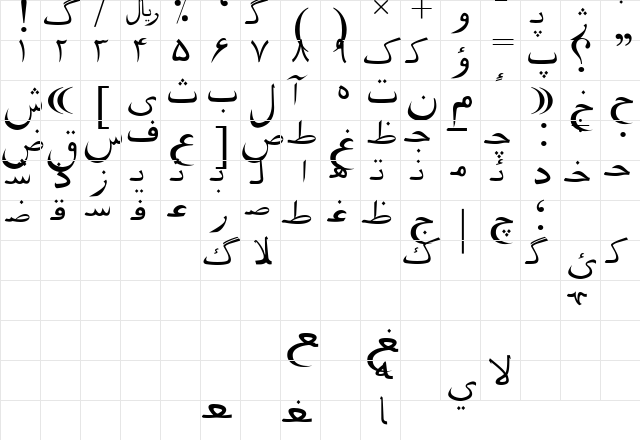 ! گ / ﷼ ٪ گ ( ) × + و - پ ژ
۱ ۲ ۳ ۴ ۵ ۶ ۷ ۸ ۹ ک ک ؤ = پ ؟ ”
ش « [ ی ث ب ل آ ه ت ن م » خ ح
ض ق س ف ع ] ص ط غ ظ ج _ چ : .
ش ذ ز ی ث ب ل ا ه ت ن م ئ د خ ح
ض ق س ف ع ر ص ط غ ظ ج | چ ؛
گ لا ک گ ئ ک
ح غ
ي لا
ع غ ا